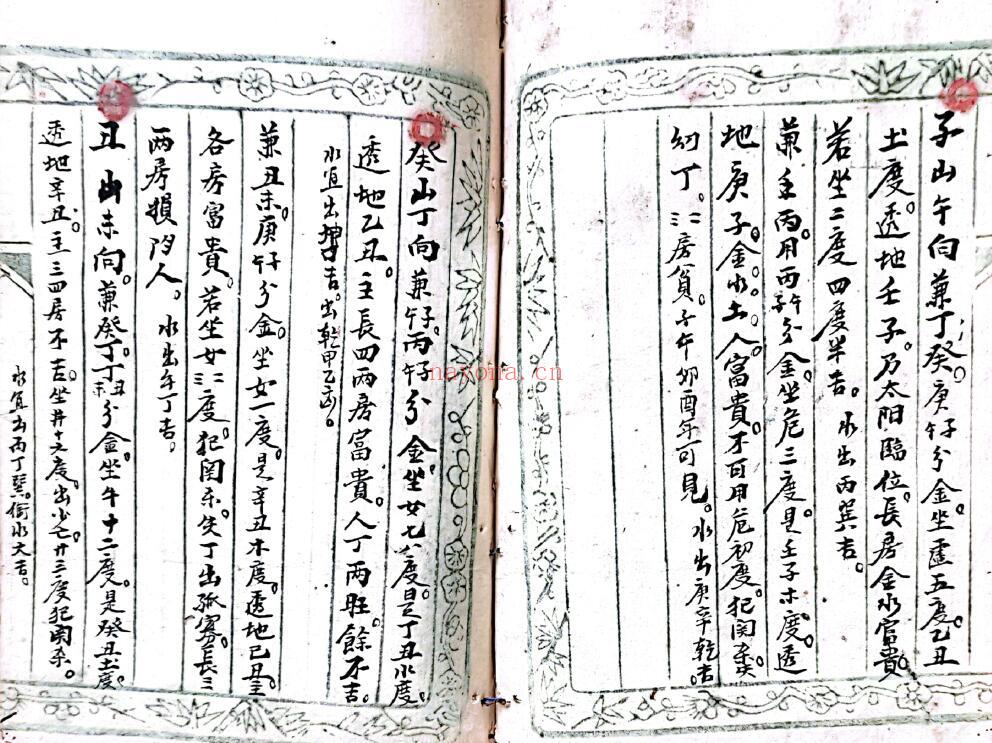 子山午向兼丁癸。庚午庚子分金坐虛五度。乙丑
土度。透地壬子。乃太阳臨位。長房金水富貴。
若坐二度四度半吉。水出丙巽吉。
兼壬丙。用丙午丙子分金。坐危三度。是壬子木度。透
地庚子。金。水。土。人富貴。不可用危初度。犯関杀
幼丁。二三房貧。子午卯酉年可見。水出庚辛乾吉。
癸山丁向兼子午。丙子丙午分金。坐女七八度。是丁丑水度。
透地乙丑。主長四两房富貴。人丁两旺。餘不吉。
水宜出坤吉。出乾甲乙凶。
兼丑未。庚子庚午分金。坐女一度。是辛丑木度。透地己丑。主
各房富貴。若坐女二三度。犯関杀失丁出孤寡。長三
两房損门人。水出午丁吉。
丑山未向。兼癸丁。丁丑丁未分金坐牛十二度。是癸丑土度。
透地辛丑。主三四房不吉。坐井十度。出少亡。井三度犯関杀。
水宜出丙丁巽。水大吉。
nayona.cn